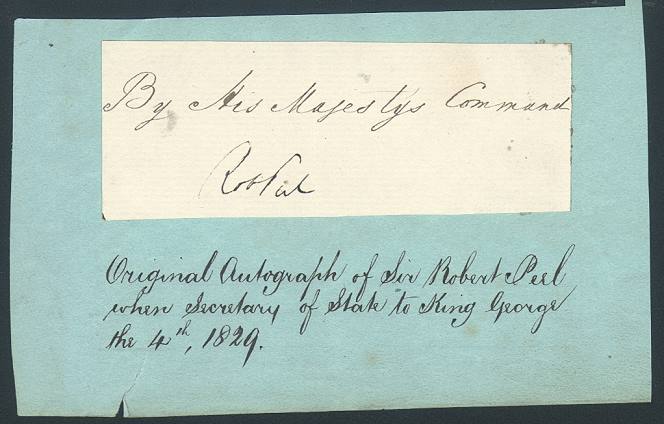 By His Majestys Command
Rob Peel
Original Autograph of Sir Robert Peel
when Secretary of State to King George
the 4th, 1829.